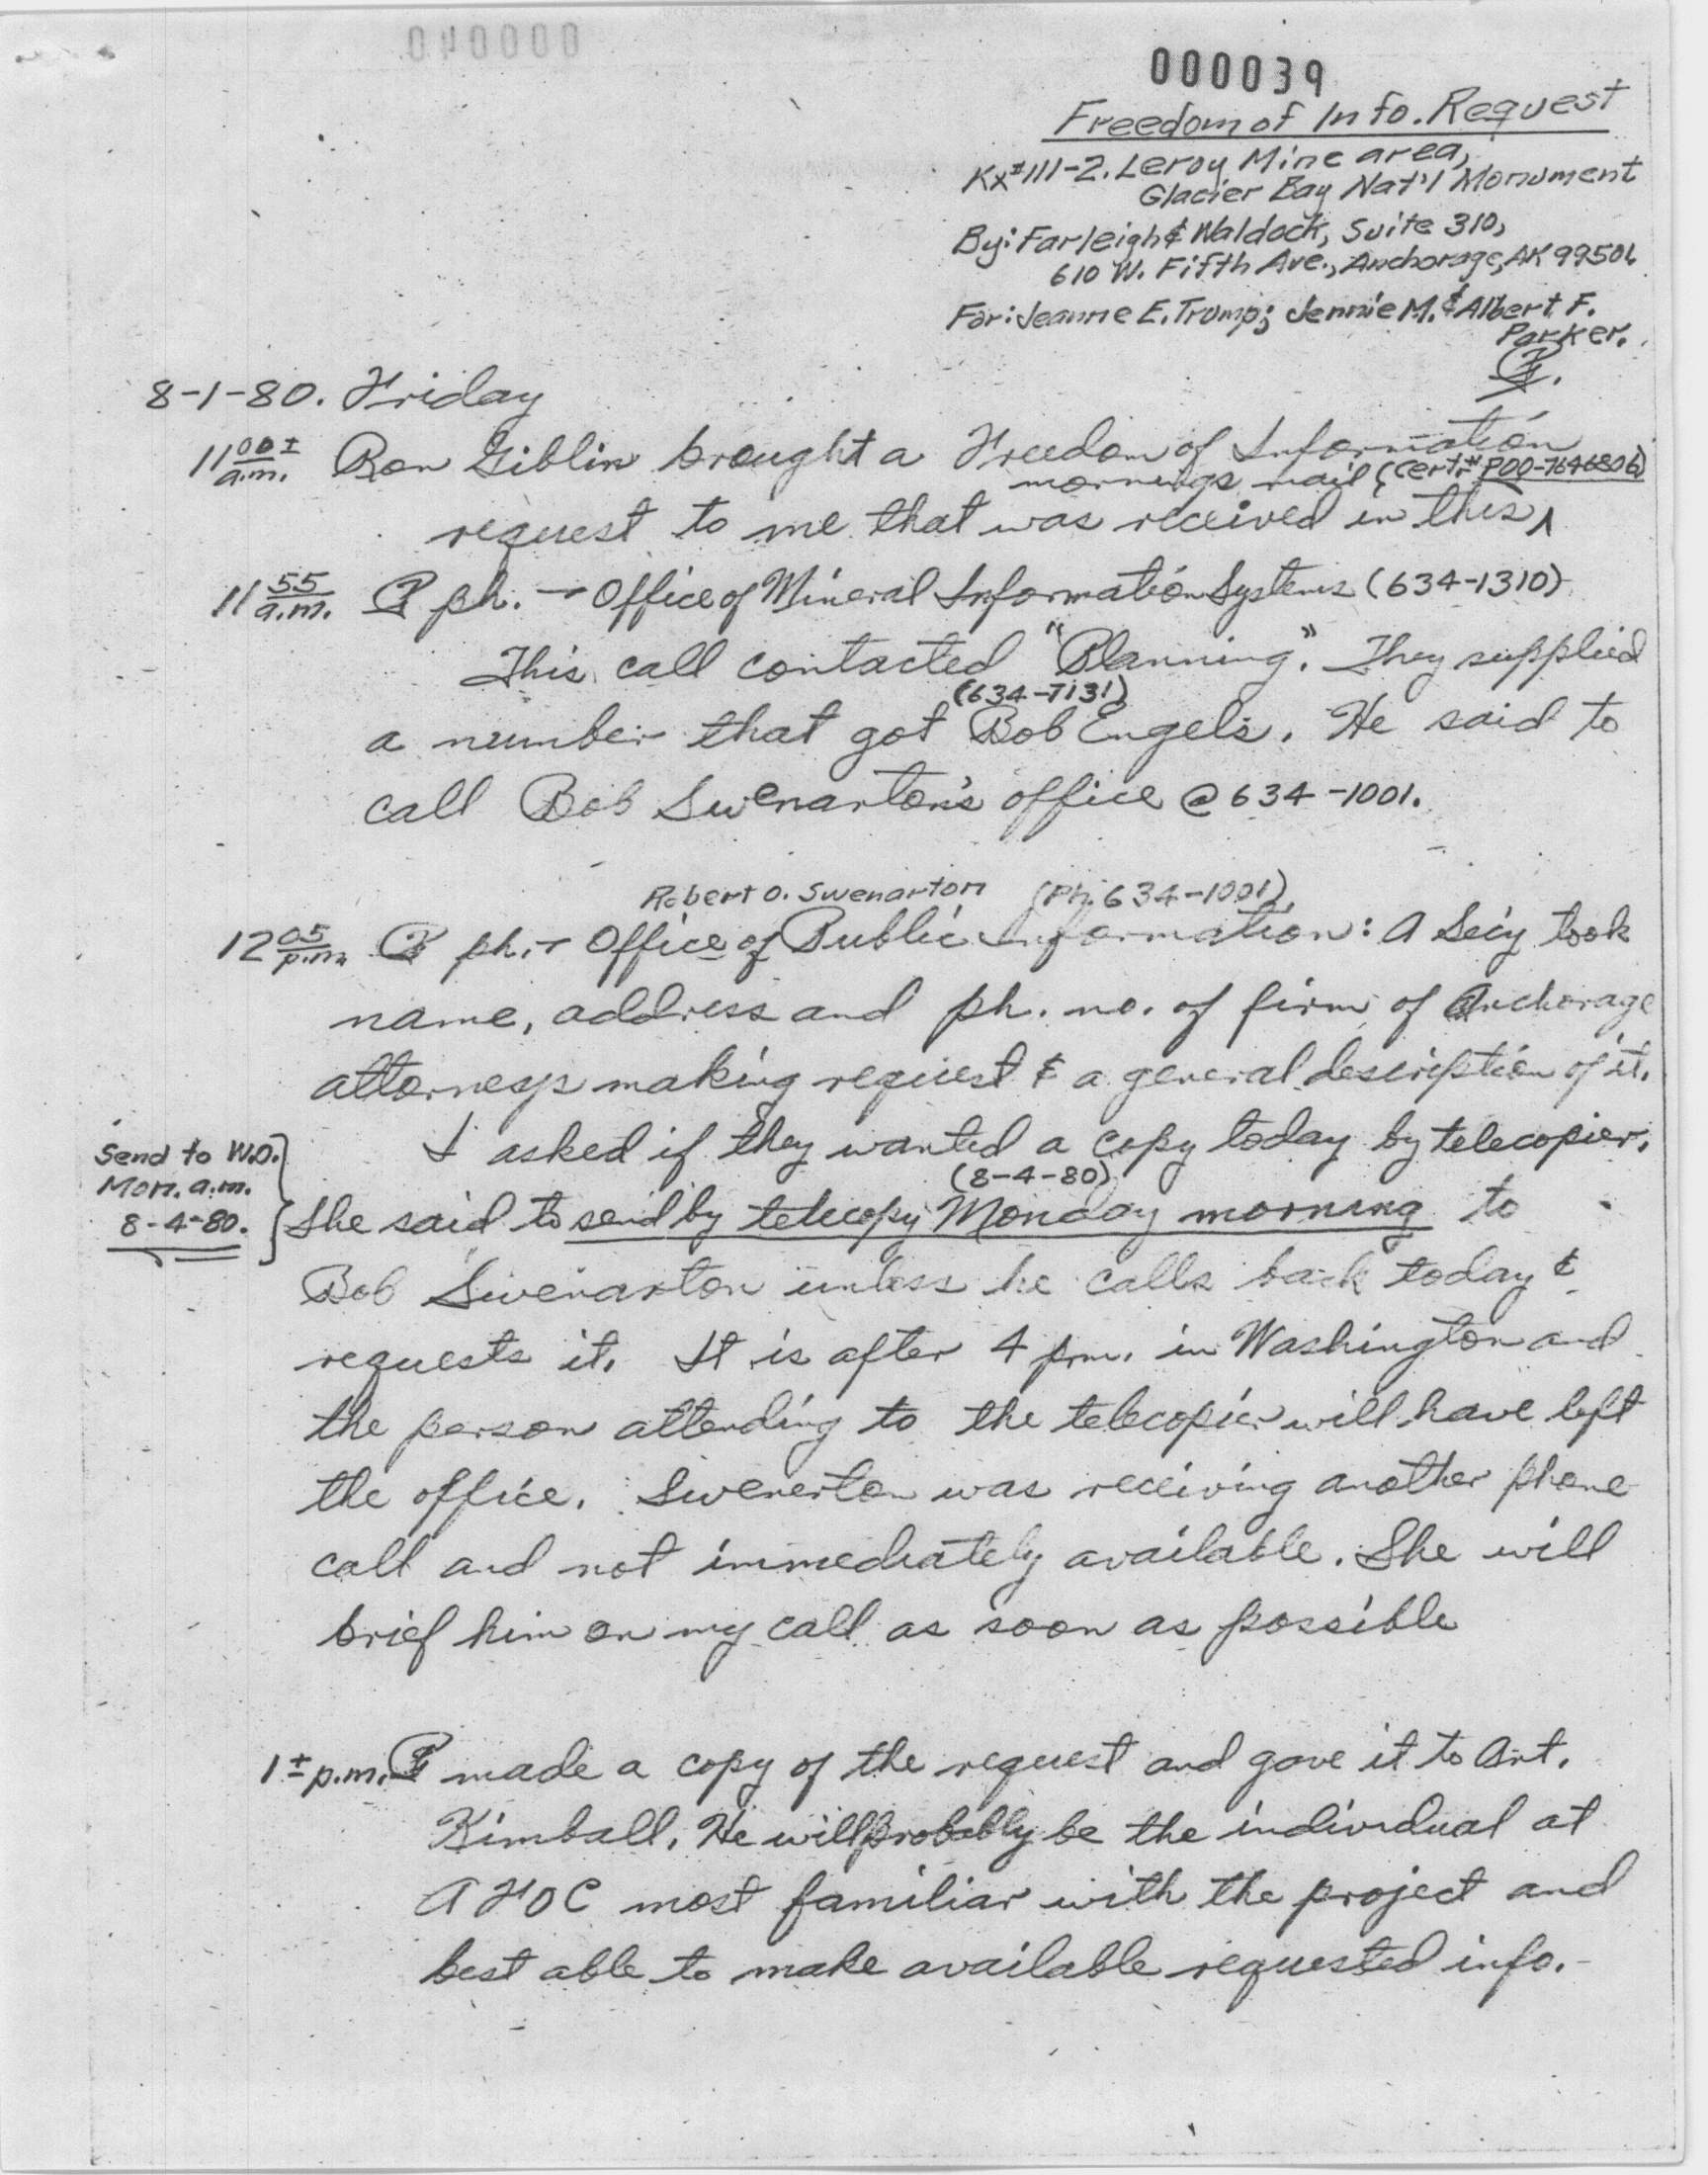 000039
Freedom of Info. Request
Kx#111-2. Leroy Mine area,
Glacier Bay Nat'l Monument
By: Farleigh & Waldock, Suite 310,
610 W. Fifth Ave., Anchorage, AK 99501
For: Jeanne E. Trump; Jennie M. & Albert F.
Parker.
8-1-80. Friday
11 00 ± a.m. Ron Giblin brought a Freedom of Information
mornings mail (Cert. # P00-7646806)
request to me that was received in this ^
11 55 a.m. ph. → Office of Mineral Information Systems (634-1310)
This call contacted "Planning". They supplied
(634-7131)
a number that got Bob Engels. He said to
call Bob Swenarton's office @ 634-1001.
Robert O. Swenarton (Ph. 634-1001)
12 05 p.m. ph. → Office of Public Information: A Sec'y took
name, address and ph. no. of firm of Anchorage
attorneys making request & a general description of it.
I asked if they wanted a copy today by telecopier.
Send to W.O.
Mon. a.m.
8-4-80.
(8-4-80)
She said to send by telecopy Monday morning to
Bob Swenarton unless he calls back today &
requests it. It is after 4 pm. in Washington and
the person attending to the telecopier will have left
the office. Swenerton was receiving another phone
call and not immediately available. She will
brief him on my call as soon as possible
1± p.m. made a copy of the request and gave it to Art.
Kimball. He will probably be the individual at
AFOC most familiar with the project and
best able to make available requested info.